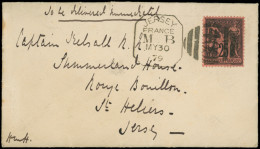 To be delivered immediately
Captain Kelsall R.N.
Summerland House
Rouge Bouillon
St Heliers
Jersey
JERSEY
FRANCE
M B
MY 30
79